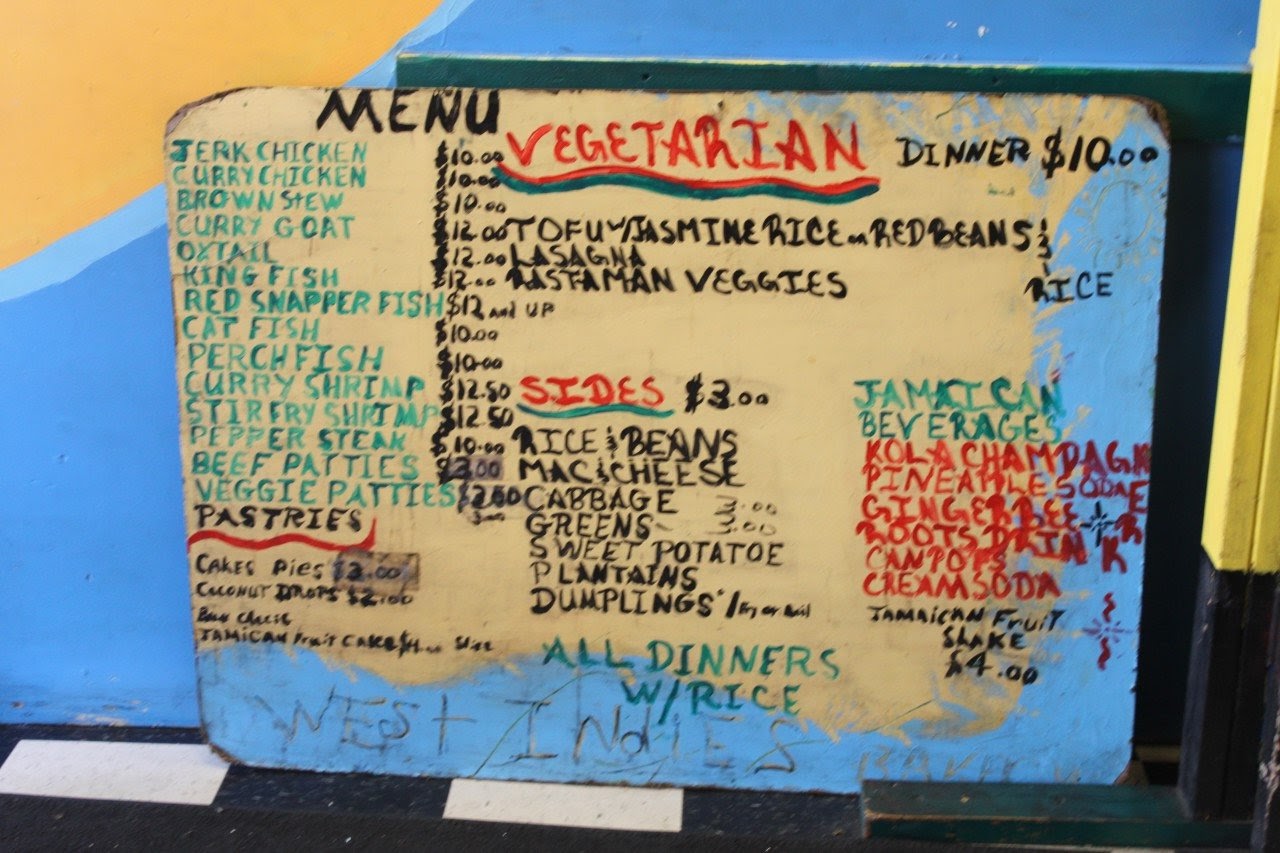 MENU
JERK CHICKEN $10.00
CURRY CHICKEN $10.00
BROWN STEW $10.00
CURRY GOAT $12.00
OXTAIL $12.00
KING FISH $12.00
RED SNAPPER FISH $12 and UP
CAT FISH $10.00
PERCH FISH $10.00
CURRY SHRIMP $12.50
STIR FRY SHRIMP $12.50
PEPPER STEAK $10.00
BEEF PATTIES $3.00
VEGGIE PATTIES $3.00
PASTRIES
CAKES Pies $3.00
COCONUT DROPS $2.00
JAMICAN Fruit CAKE Slice
VEGETARIAN DINNER $10.00
TOFU W/JASMINE RICE or RED BEANS &
LASAGNA
RASTAMAN VEGGIES RICE
SIDES $3.00
RICE & BEANS
MAC & CHEESE
CABBAGE
GREENS
SWEET POTATOE
PLANTAINS
DUMPLINGS
JAMAICAN
BEVERAGES
KOLA CHAMPAGN
PINEAPPLE SODA E
GINGER BEE R
ROOTS DRINK
CAN POPS
CREAM SODA
JAMAICAN FRUIT
SHAKE
$4.00
ALL DINNERS
W/RICE
WEST INDIES